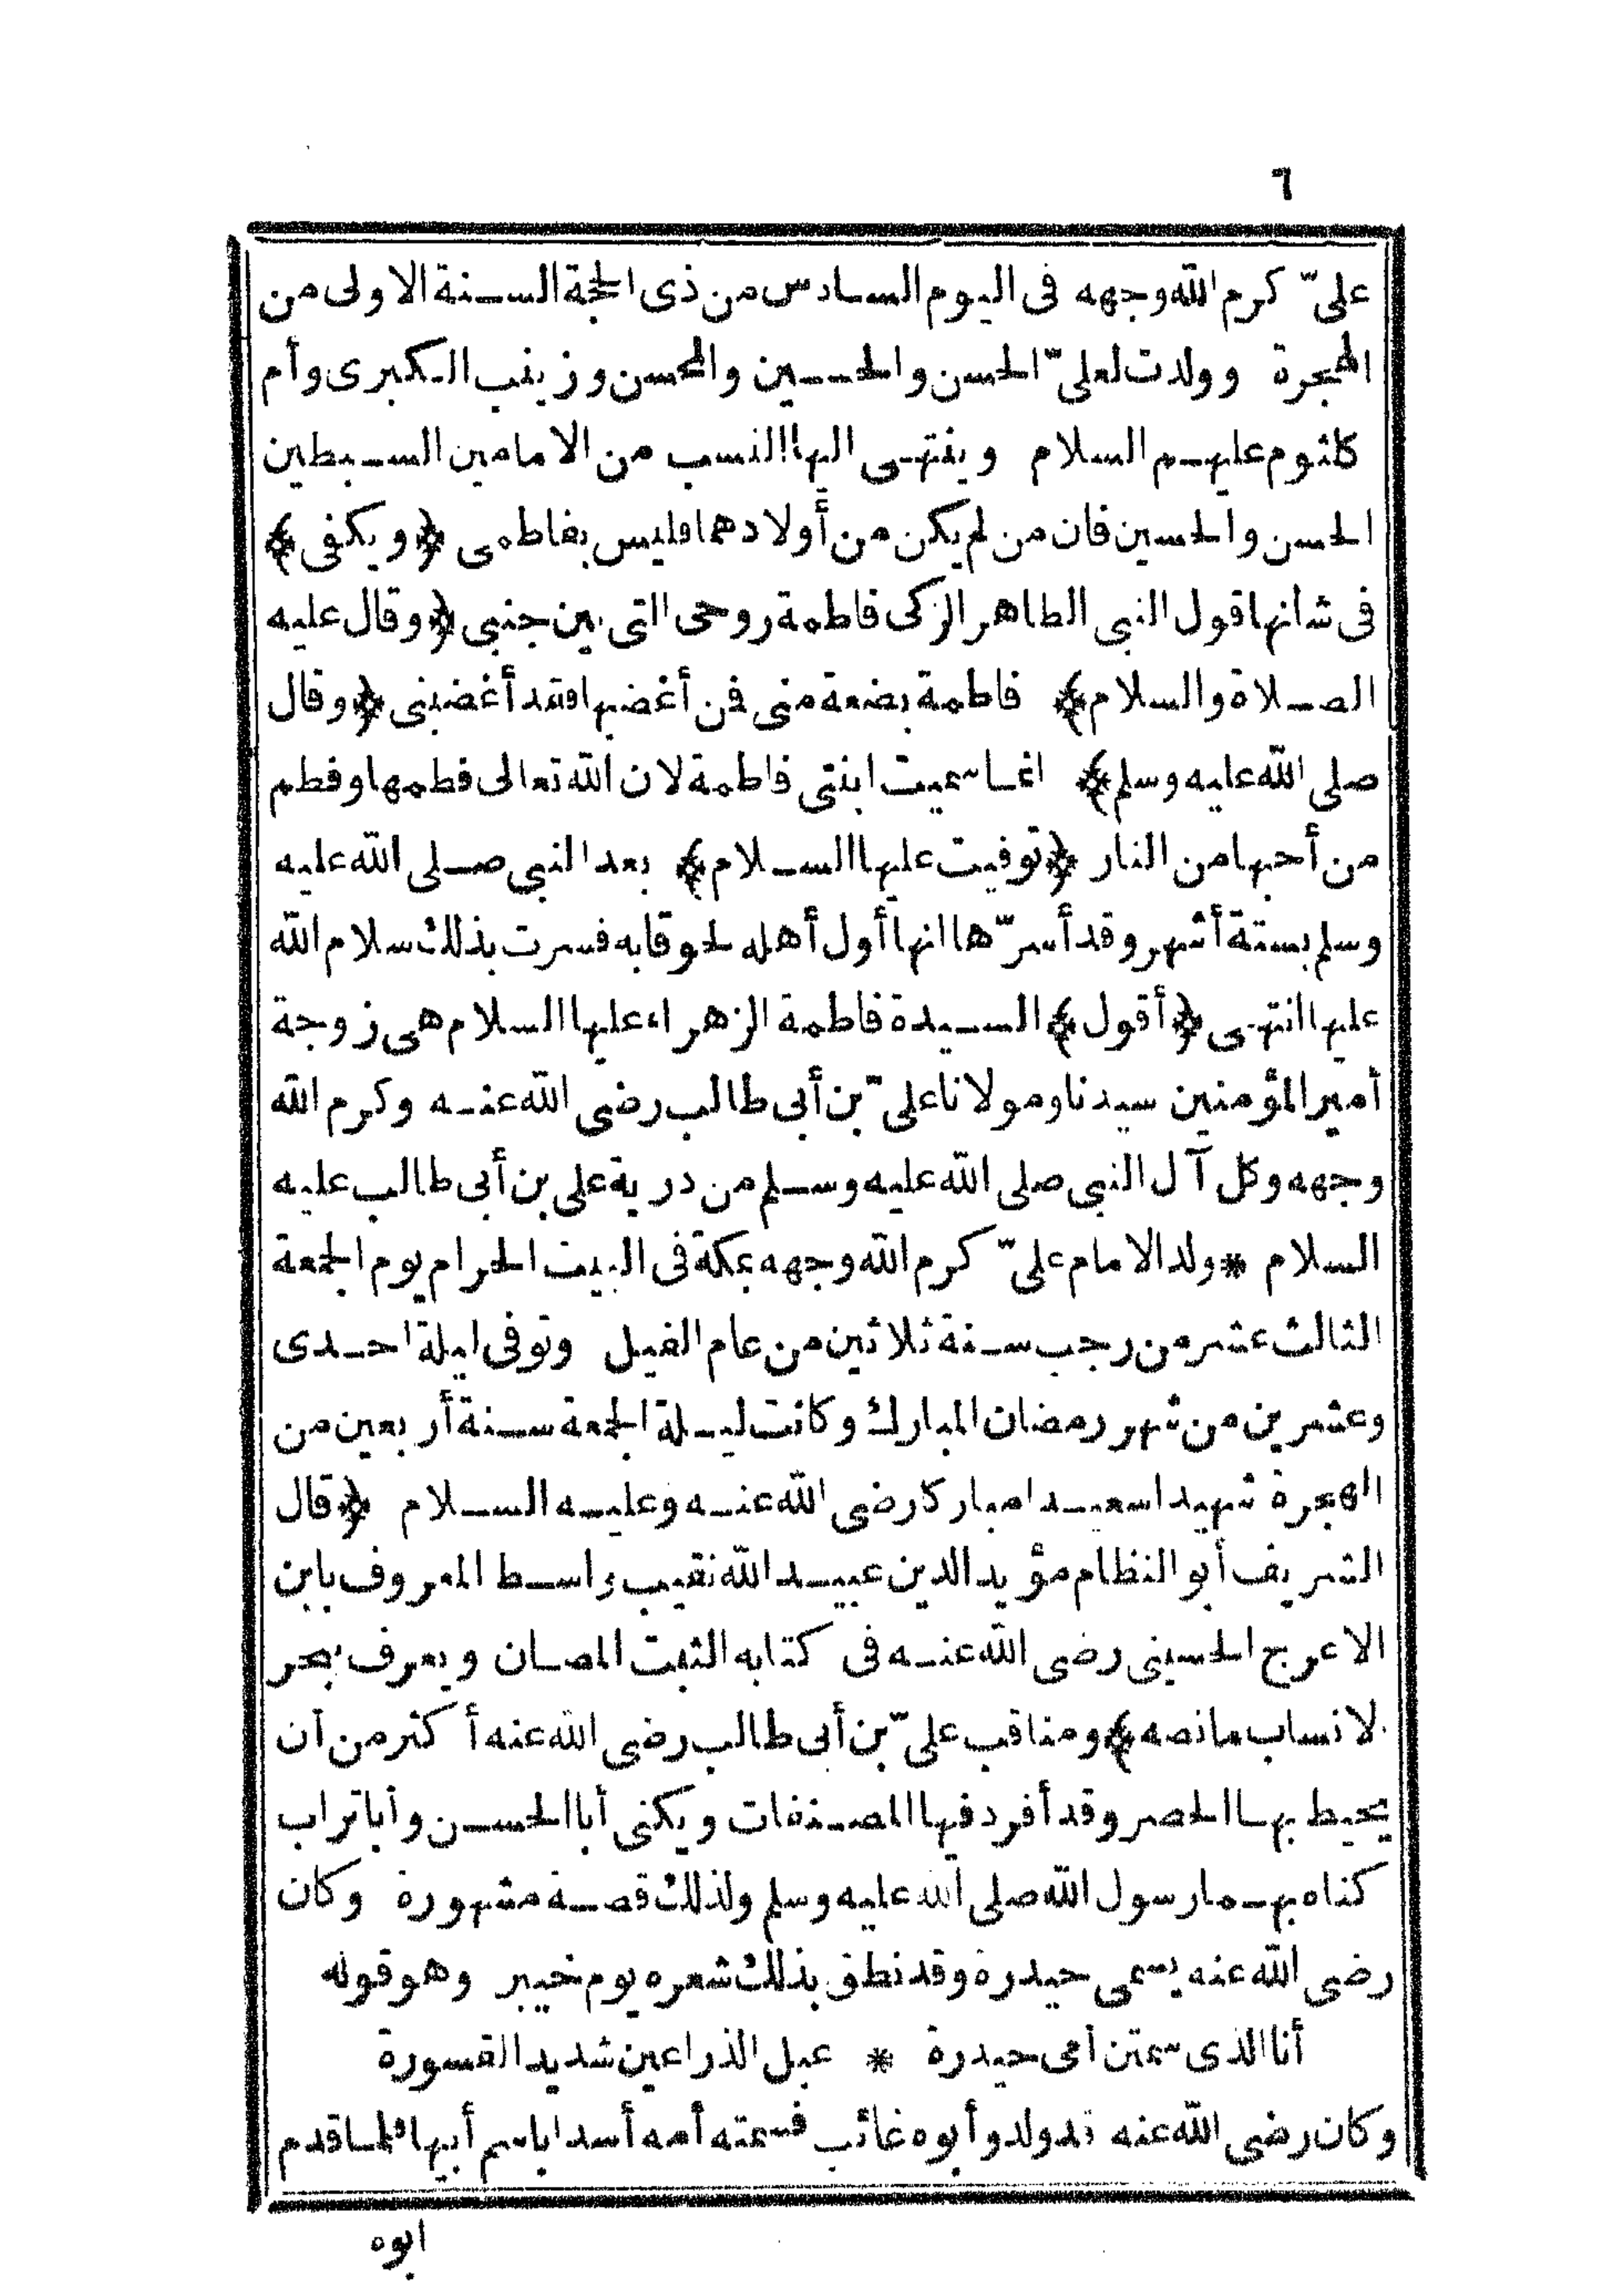 ٦
علىّ كرم الله وجهه فى اليوم السادس من ذى الحجة السنة الاولى من
الهجرة وولدت لعلىّ الحسن والحسين والمحسن وزينب الكبرى وأم
كلثوم عليهم السلام وينتهى اليها النسب من الامامين السبطين
الحسن والحسين فان من لم يكن من أولادهما فليس بفاطمى ﴿ويكفى﴾
فى شانها قول النبى الطاهر الزكى فاطمة روحى التى بين جنبى ﴿وقال عليه
الصلاة والسلام﴾ فاطمة بضعة منى فمن أغضبها فقد أغضبنى ﴿وقال
صلى الله عليه وسلم﴾ انما سميت ابنتى فاطمة لان الله تعالى فطمها وفطم
من أحبها من النار ﴿توفيت عليها السلام﴾ بعد النبى صلى الله عليه
وسلم بستة أشهر وقد أسرّها انها أول أهله لحوقا به فسرت بذلك سلام الله
عليها انتهى ﴿أقول﴾ السيدة فاطمة الزهراء عليها السلام هى زوجة
أمير المؤمنين سيدنا ومولانا علىّ بن أبى طالب رضى الله عنه وكرم الله
وجهه وكل آل النبى صلى الله عليه وسلم من درية على بن أبى طالب عليه
السلام * ولد الامام علىّ كرم الله وجهه بمكة فى البيت الحرام يوم الجمعة
الثالث عشر من رجب سنة ثلاثين من عام الفيل وتوفى ليلة احدى
وعشرين من شهر رمضان المبارك وكانت ليلة الجمعة سنة أربعين من
الهجرة شهيدا سعيدا مباركا رضى الله عنه وعليه السلام ﴿قال
الشريف أبو النظام مؤيد الدين عبيد الله نقيب واسط المعروف بابن
الاعرج الحسينى رضى الله عنه فى كتابه الثبت المصان ويعرف ببحر
لانساب مانصه﴾ ومناقب علىّ بن أبى طالب رضى الله عنه أكثر من أن
يحيط بها الحصر وقد أفرد فيها المصنفات ويكنى أبا الحسن وأبا تراب
كناه بهما رسول الله صلى الله عليه وسلم ولذلك قصة مشهورة وكان
رضى الله عنه يسمى حيدرة وقد نطق بذلك شعره يوم خيبر وهو قوله
أنا الذى سمتن أمى حيدرة * عبل الذراعين شديد القسورة
وكان رضى الله عنه قد ولد وأبوه غائب فسمته أمه أسدا باسم أبيها فلما قدم
ابوه